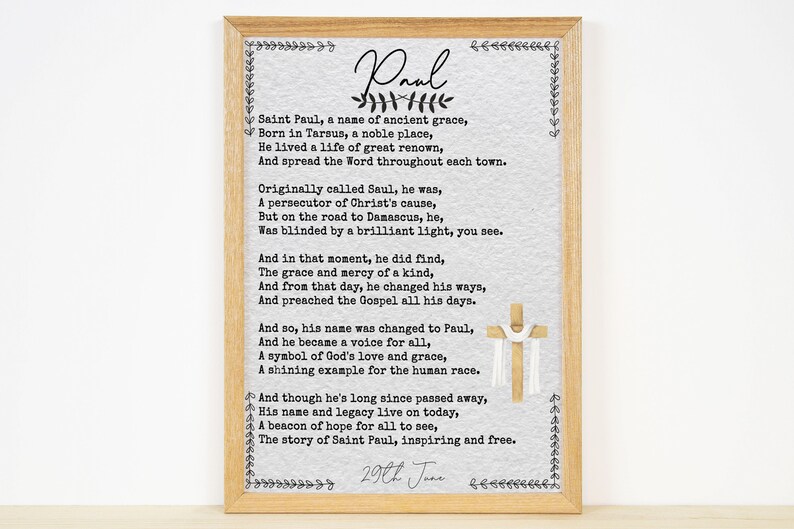 Paul
Saint Paul, a name of ancient grace,
Born in Tarsus, a noble place,
He lived a life of great renown,
And spread the Word throughout each town.
Originally called Saul, he was,
A persecutor of Christ's cause,
But on the road to Damascus, he,
Was blinded by a brilliant light, you see.
And in that moment, he did find,
The grace and mercy of a kind,
And from that day, he changed his ways,
And preached the Gospel all his days.
And so, his name was changed to Paul,
And he became a voice for all,
A symbol of God's love and grace,
A shining example for the human race.
And though he's long since passed away,
His name and legacy live on today,
A beacon of hope for all to see,
The story of Saint Paul, inspiring and free.
29th June